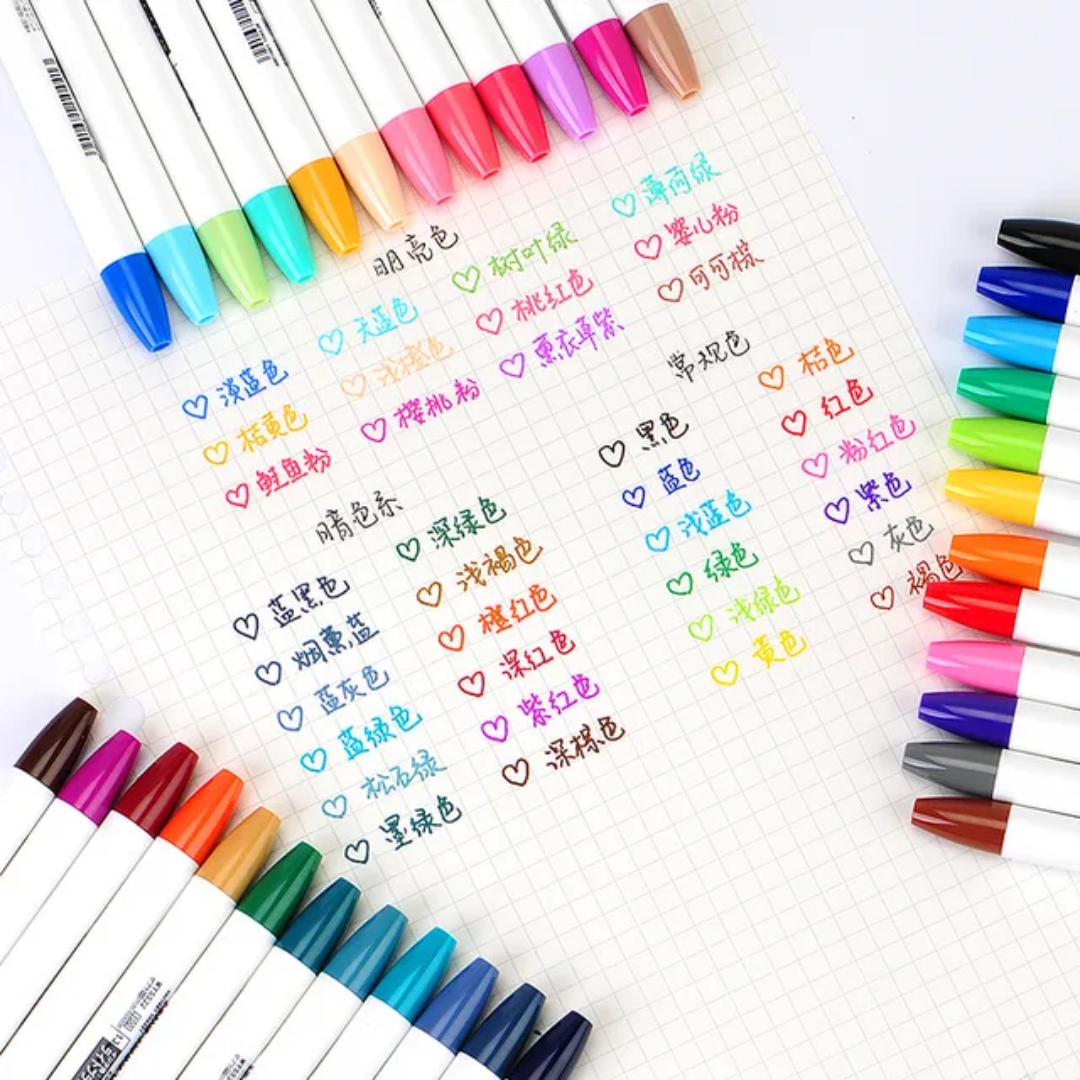 明亮色
淡蓝色
天蓝色
树叶绿
薄荷绿
桔黄色
浅橙色
桃红色
蜜心粉
鲑鱼粉
樱桃粉
薰衣草紫
可可棕
常规色
黑色
蓝色
浅蓝色
绿色
浅绿色
黄色
桔色
红色
粉红色
紫色
灰色
褐色
暗色系
蓝黑色
烟薰蓝
蓝灰色
蓝绿色
松石绿
墨绿色
深绿色
浅褐色
橙红色
深红色
紫红色
深棕色